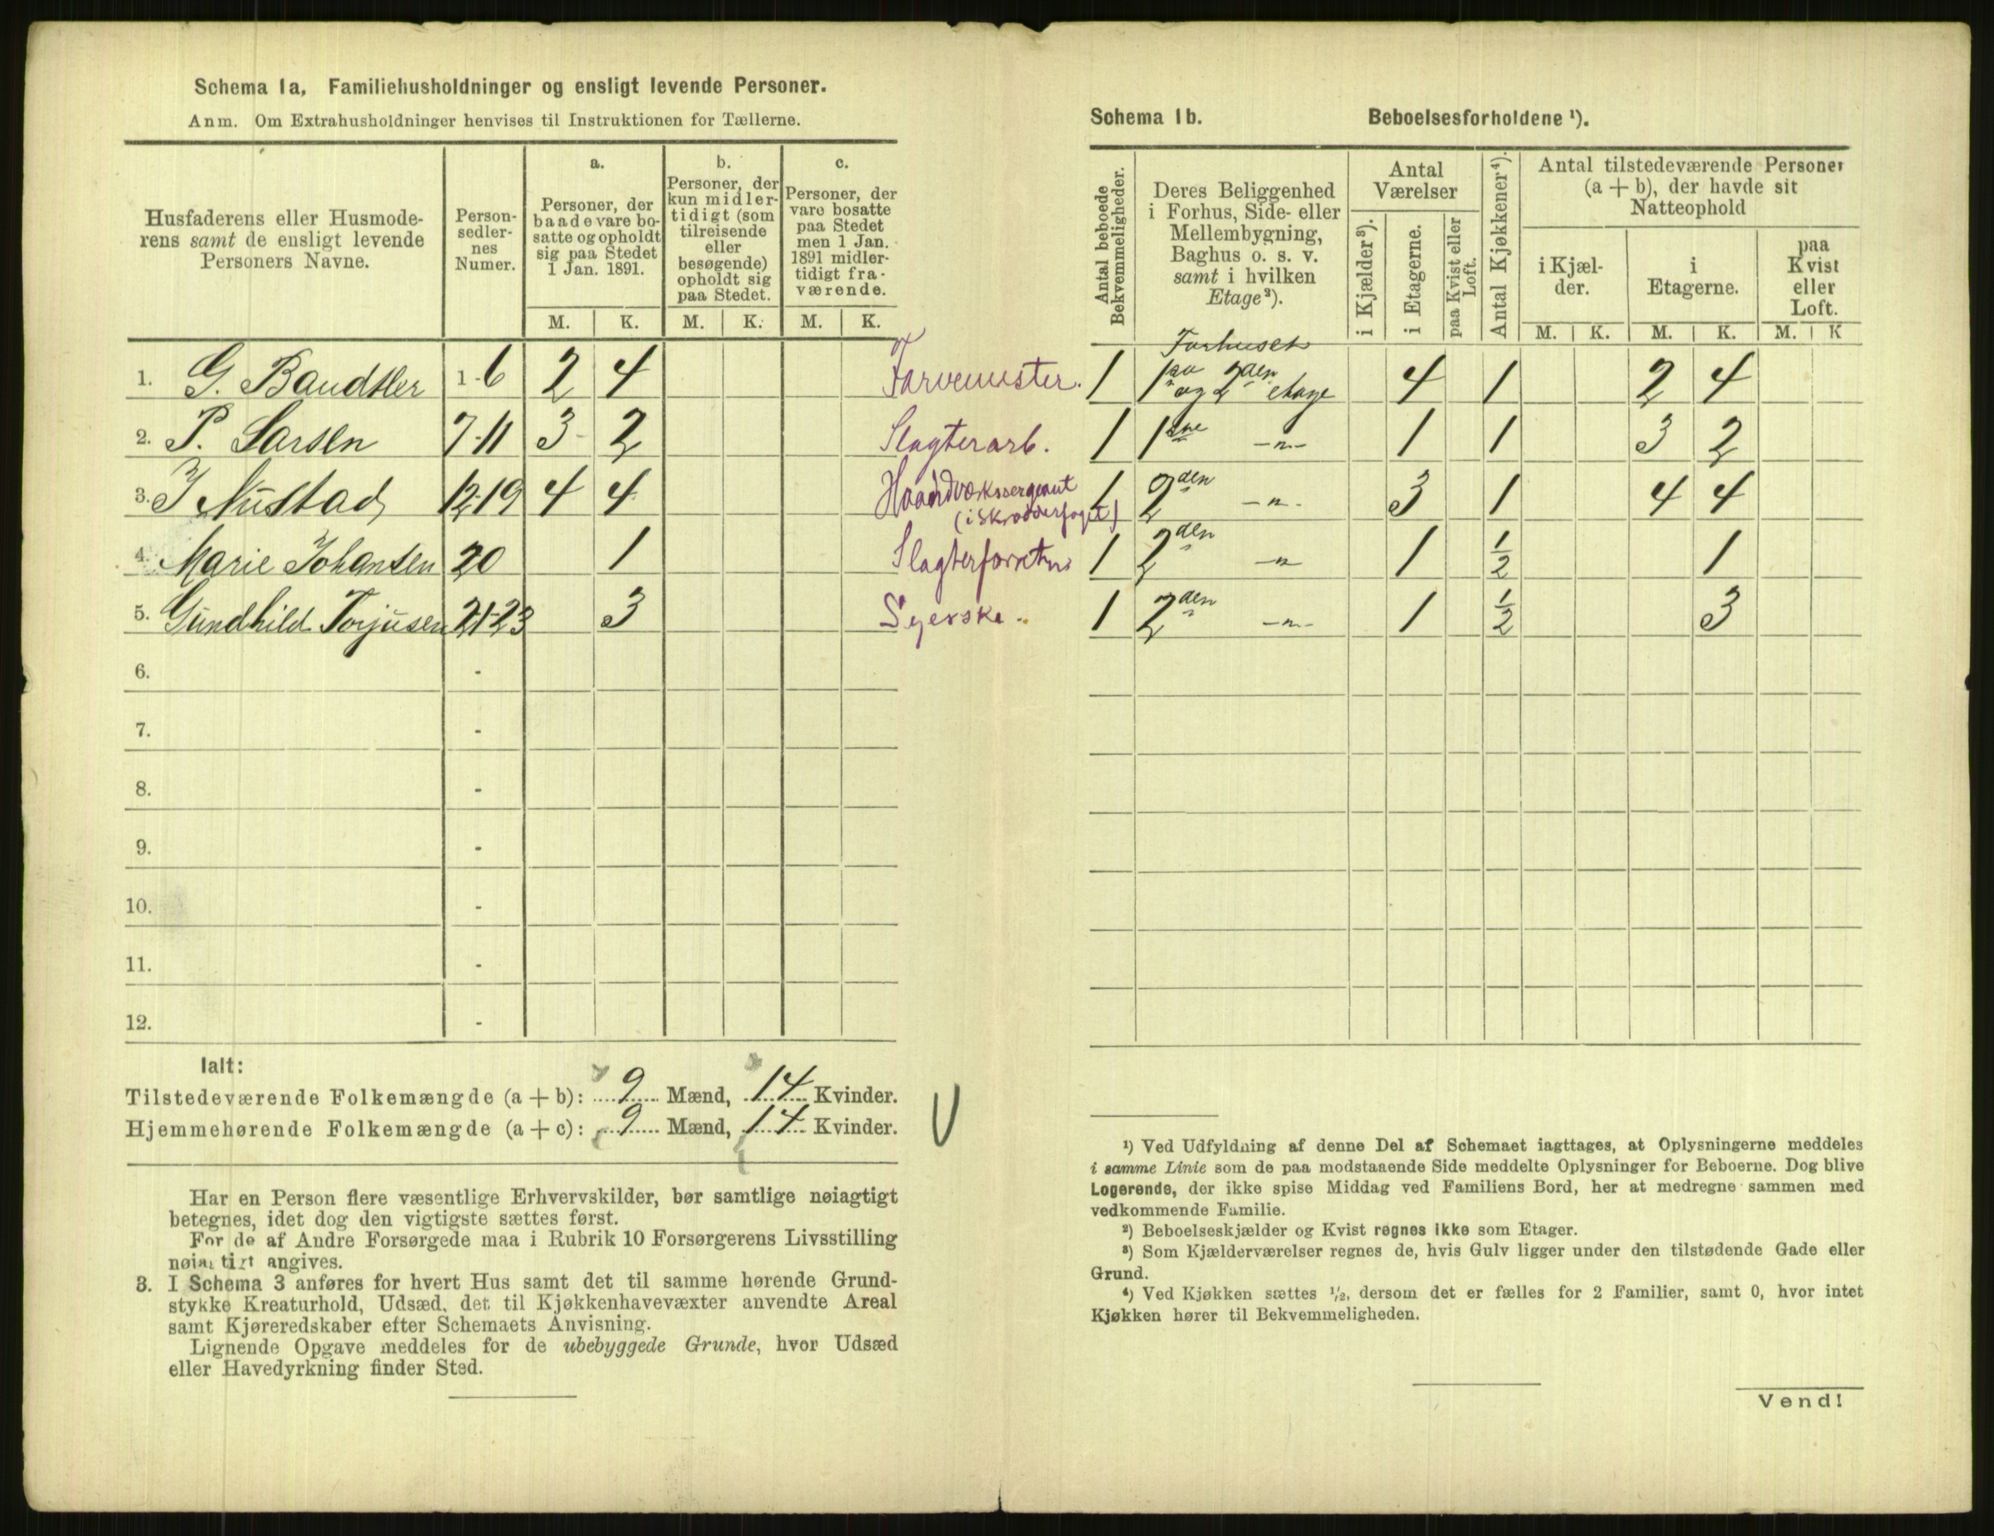 Schema 1a, Familiehusholdninger og ensligt levende Personer.
Anm. Om Extrahusholdninger henvises til Instruktionen for Tællerne.
Husfaderens eller Husmode-
rens samt de ensligt levende
Personers Navne.
Person-
sedler-
nes
Numer.
a.
Personer, der
baade vare bo-
satte og opholdt
sig paa Stedet
1 Jan. 1891.
b.
Personer, der
kun midler-
tidigt (som
tilreisende
eller
besøgende)
opholdt sig
paa Stedet.
c.
Personer, der
vare bosatte
paa Stedet
men 1 Jan.
1891 midler-
tidigt fra-
værende.
M. K. M. K. M. K.
1. G. Bandtler 1-6 2 4 Farvemester.
2. P. Larsen 7-11 3 2 Slagterarb.
3. I Nustad 12-19 4 4 Haandværkssergeant
(i Skrædderfaget)
4. Marie Johansen 20 1
5. Gundhild Torjusen 21-23 3 Syerske.
6. -
7. -
8. -
9. -
10. -
11. -
12. -
Ialt:
Tilstedeværende Folkemængde (a + b): 9 Mænd, 14 Kvinder.
Hjemmehørende Folkemængde (a + c): 9 Mænd, 14 Kvinder.
Har en Person flere væsentlige Erhvervskilder, bør samtlige nøiagtigt
betegnes, idet dog den vigtigste sættes først.
For de af Andre Forsørgede maa i Rubrik 10 Forsørgerens Livsstilling
nøiagtigt angives.
3. I Schema 3 anføres for hvert Hus samt det til samme hørende Grund-
stykke Kreaturhold, Udsæd, det til Kjøkkenhavevæxter anvendte Areal
samt Kjøreredskaber efter Schemaets Anvisning.
Lignende Opgave meddeles for de ubebyggede Grunde, hvor Udsæd
eller Havedyrkning finder Sted.
Schema 1b. Beboelsesforholdene ¹).
Antal beboede
Bekvemmeligheder.
Deres Beliggenhed
i Forhus, Side- eller
Mellembygning,
Baghus o. s. v.
samt i hvilken
Etage²).
Antal
Værelser
i Kjælder³).
i Etagerne.
paa Kvist eller
Loft.
Antal Kjøkkener⁴).
Antal tilstedeværende Personer
(a + b), der havde sit
Natteophold
i Kjæl-
der.
i
Etagerne.
paa
Kvist
eller
Loft.
M. K. M. K. M. K
Forhuset
1 paa 1 og 2den etage 4 1 2 4
1 1ste -"- 1 1 3 2
1 2den -"- 3 1 4 4
1 2den -"- 1 ½ 1
1 2den -"- 1 ½ 3
¹) Ved Udfyldning af denne Del af Schemaet iagttages, at Oplysningerne meddeles
i samme Linie som de paa modstaaende Side meddelte Oplysninger for Beboerne. Dog blive
Logerende, der ikke spise Middag ved Familiens Bord, her at medregne sammen med
vedkommende Familie.
²) Beboelseskjælder og Kvist regnes ikke som Etager.
³) Som Kjælderværelser regnes de, hvis Gulv ligger under den tilstødende Gade eller
Grund.
⁴) Ved Kjøkken sættes ¹/₂, dersom det er fælles for 2 Familier, samt 0, hvor intet
Kjøkken hører til Bekvemmeligheden.
Vend!